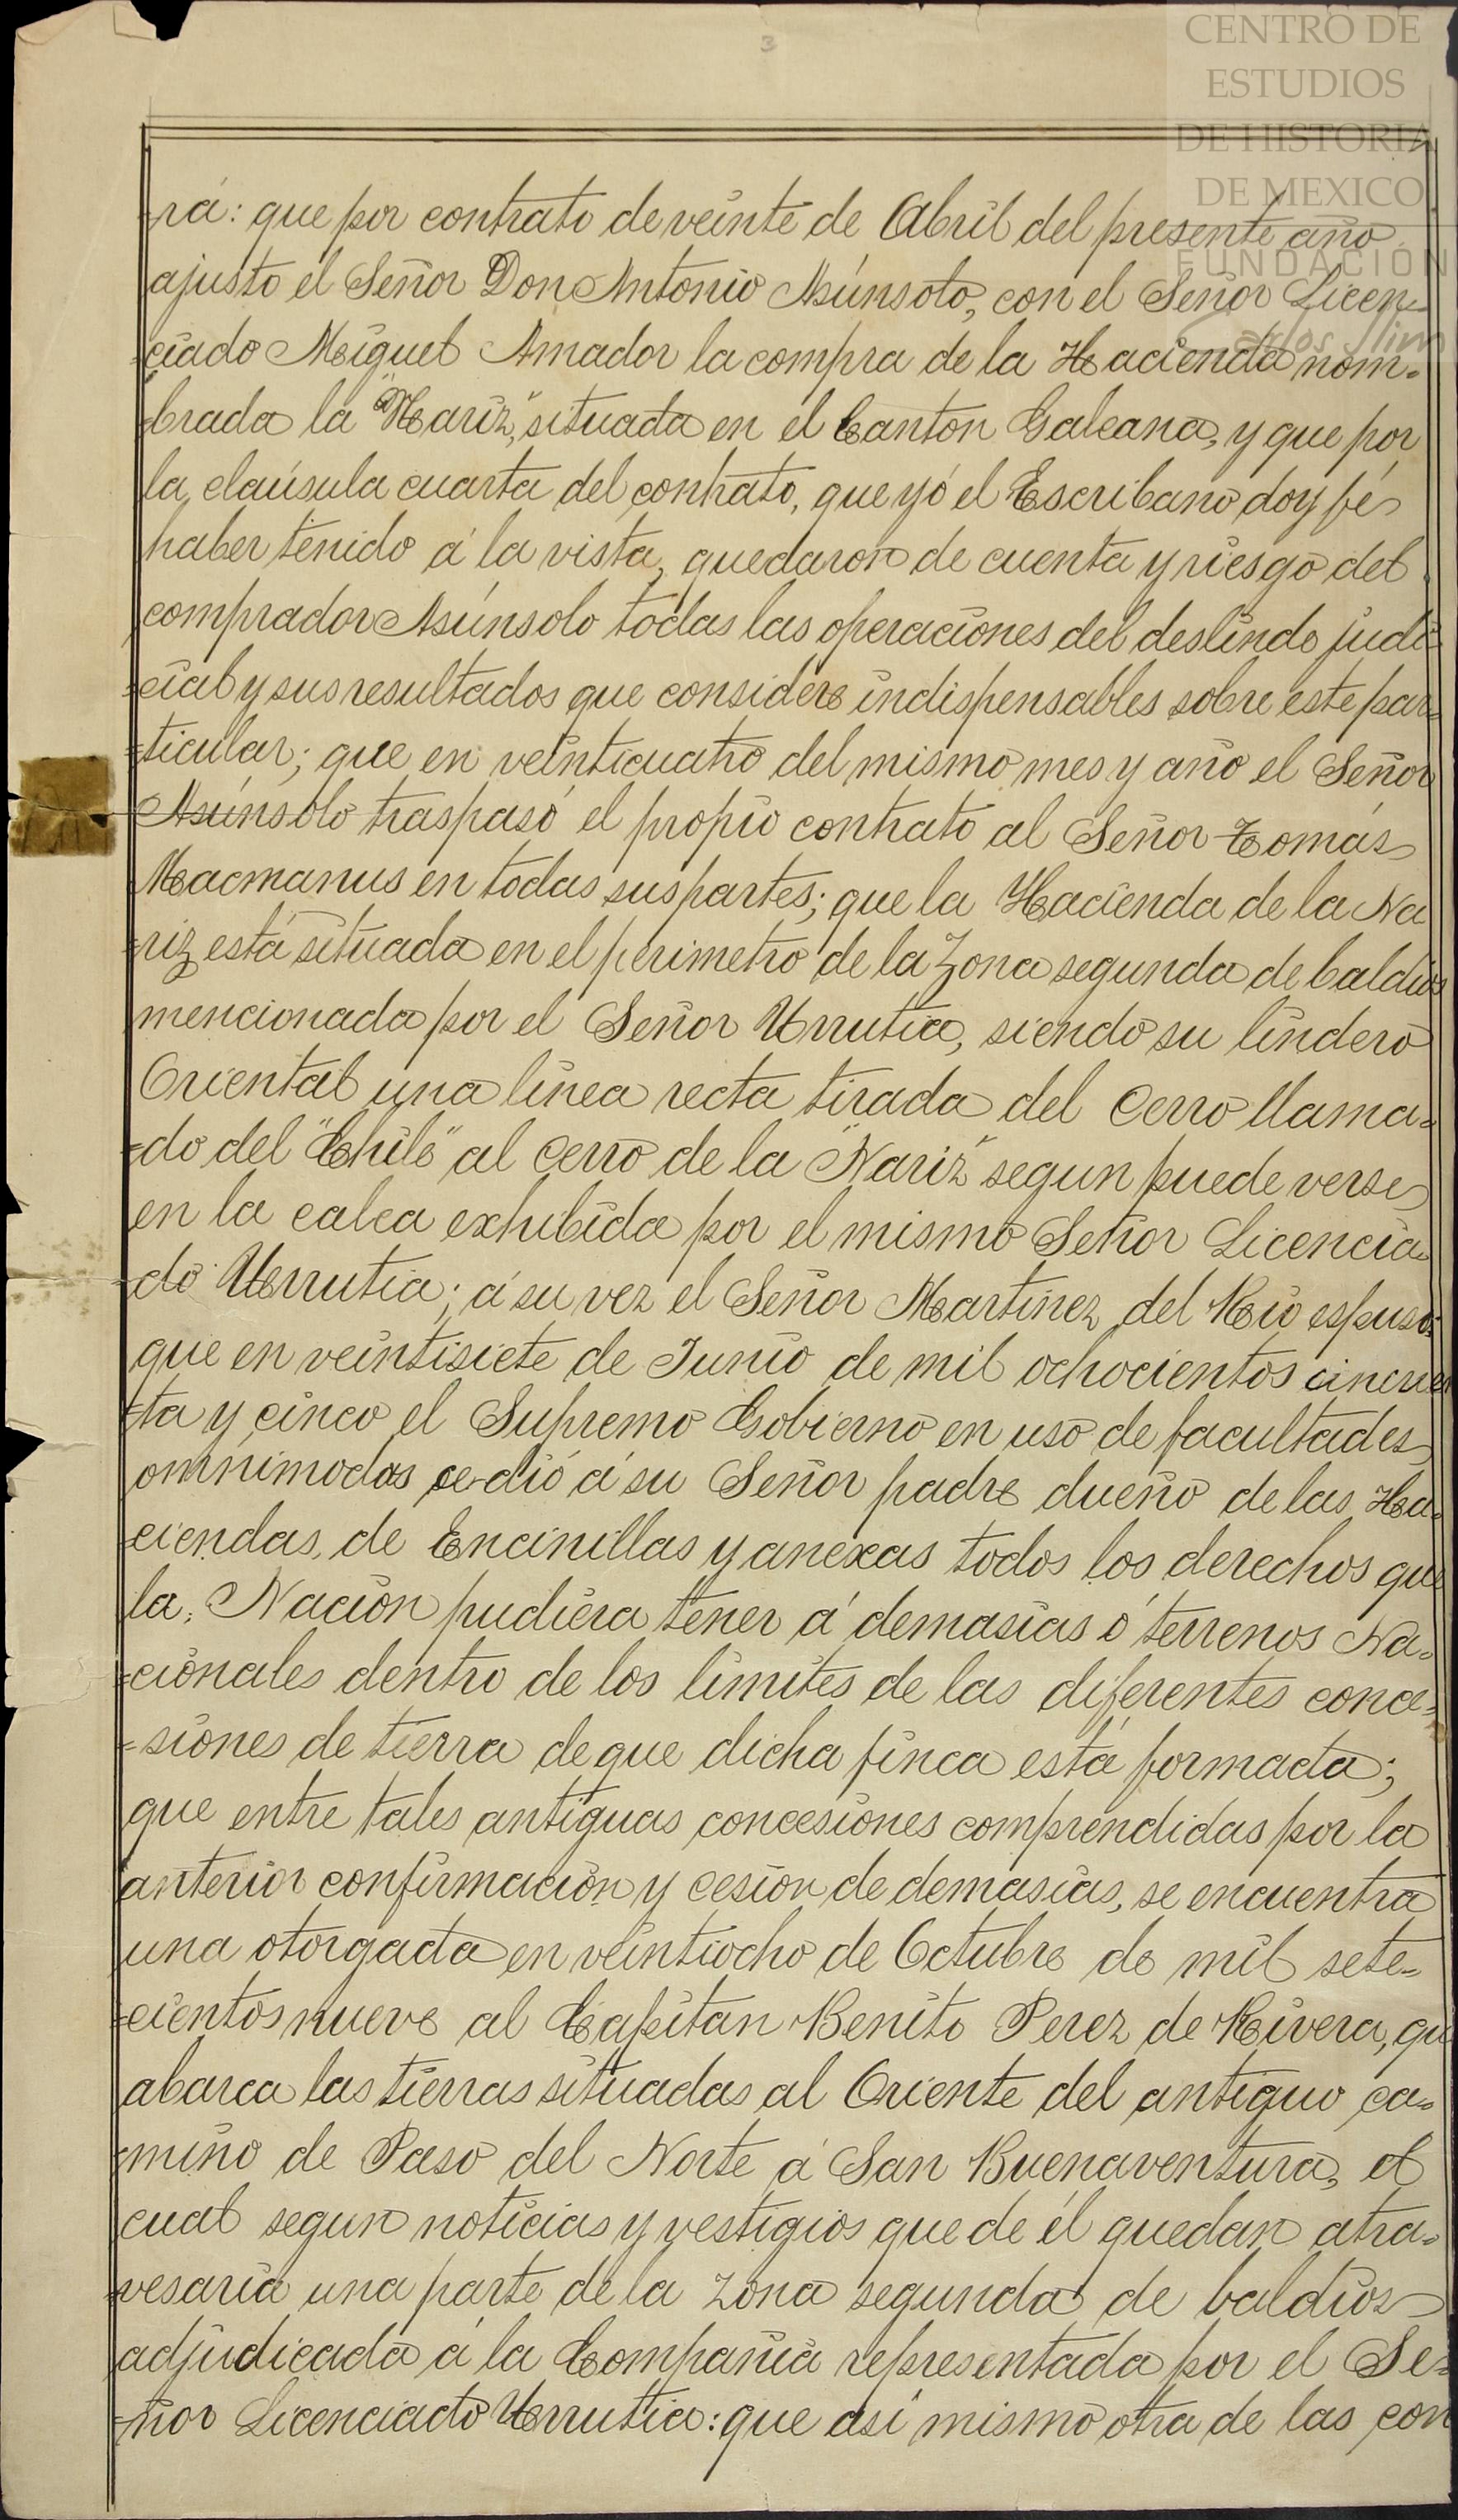 3
CENTRO DE
ESTUDIOS
DE HISTORIA
DE MEXICO
FUNDACIÓN
Carlos Slim
-rá: que por contrato de veinte de Abril del presente año
ajusto el Señor Don Antonio Asúnsoto, con el Señor Licen-
-ciado Miguel Amador la compra de la Hacienda nom-
-brada la "Nariz," situada en el Canton Galeana, y que por
la claúsula cuarta del contrato, que yó el Escribano doy fé
haber tenido á la vista, quedaron de cuenta y riesgo del
comprador Asúnsolo todas las operaciones del deslinde judi-
-cial y sus resultados que considere indispensables sobre este par-
-ticular; que en veinticuatro del mismo mes y año el Señor
Asúnsolo traspasó el propio contrato al Señor Tomás
Macmanus en todas sus partes; que la Hacienda de la Na
-riz está situada en el perimetro de la Zona segunda de baldios
mencionada por el Señor Urrutia, siendo su lindero
Oriental una linea recta tirada del Cerro llama-
-do del "Chile" al cerro de la "Nariz" segun puede verse
en la calca exhibida por el mismo Señor Licencia-
-do Urrutia; á su vez el Señor Martinez del Rio espuso:
que en veintisiete de Junio de mil ochocientos cincuen
-ta y cinco el Supremo Gobierno en uso de facultades
omnimodas cedió á su Señor padre dueño de las Ha-
ciendas de Encinillas y anexas todos los derechos que
la Nacion pudiera tener á demasias ó terrenos Na-
-cionales dentro de los limites de las diferentes conce-
-siones de tierra de que dicha finca está formada;
que entre tales antiguas concesiones comprendidas por la
anterior confirmacion y cesion de demasias, se encuentra
una otorgada en veintiocho de Octubre de mil sete-
-cientos nueve al Capitan Benito Perez de Rivera, que
abarca las tierras situadas al Oriente del antiguo ca-
-mino de Paso del Norte á San Buenaventura, el
cual segun noticias y vestigios que de él quedan atra-
vesaria una parte de la zona segunda de baldios
adjudicada á la Compañia representada por el Se-
-ñor Licenciado Urrutia: que asi mismo otra de las con